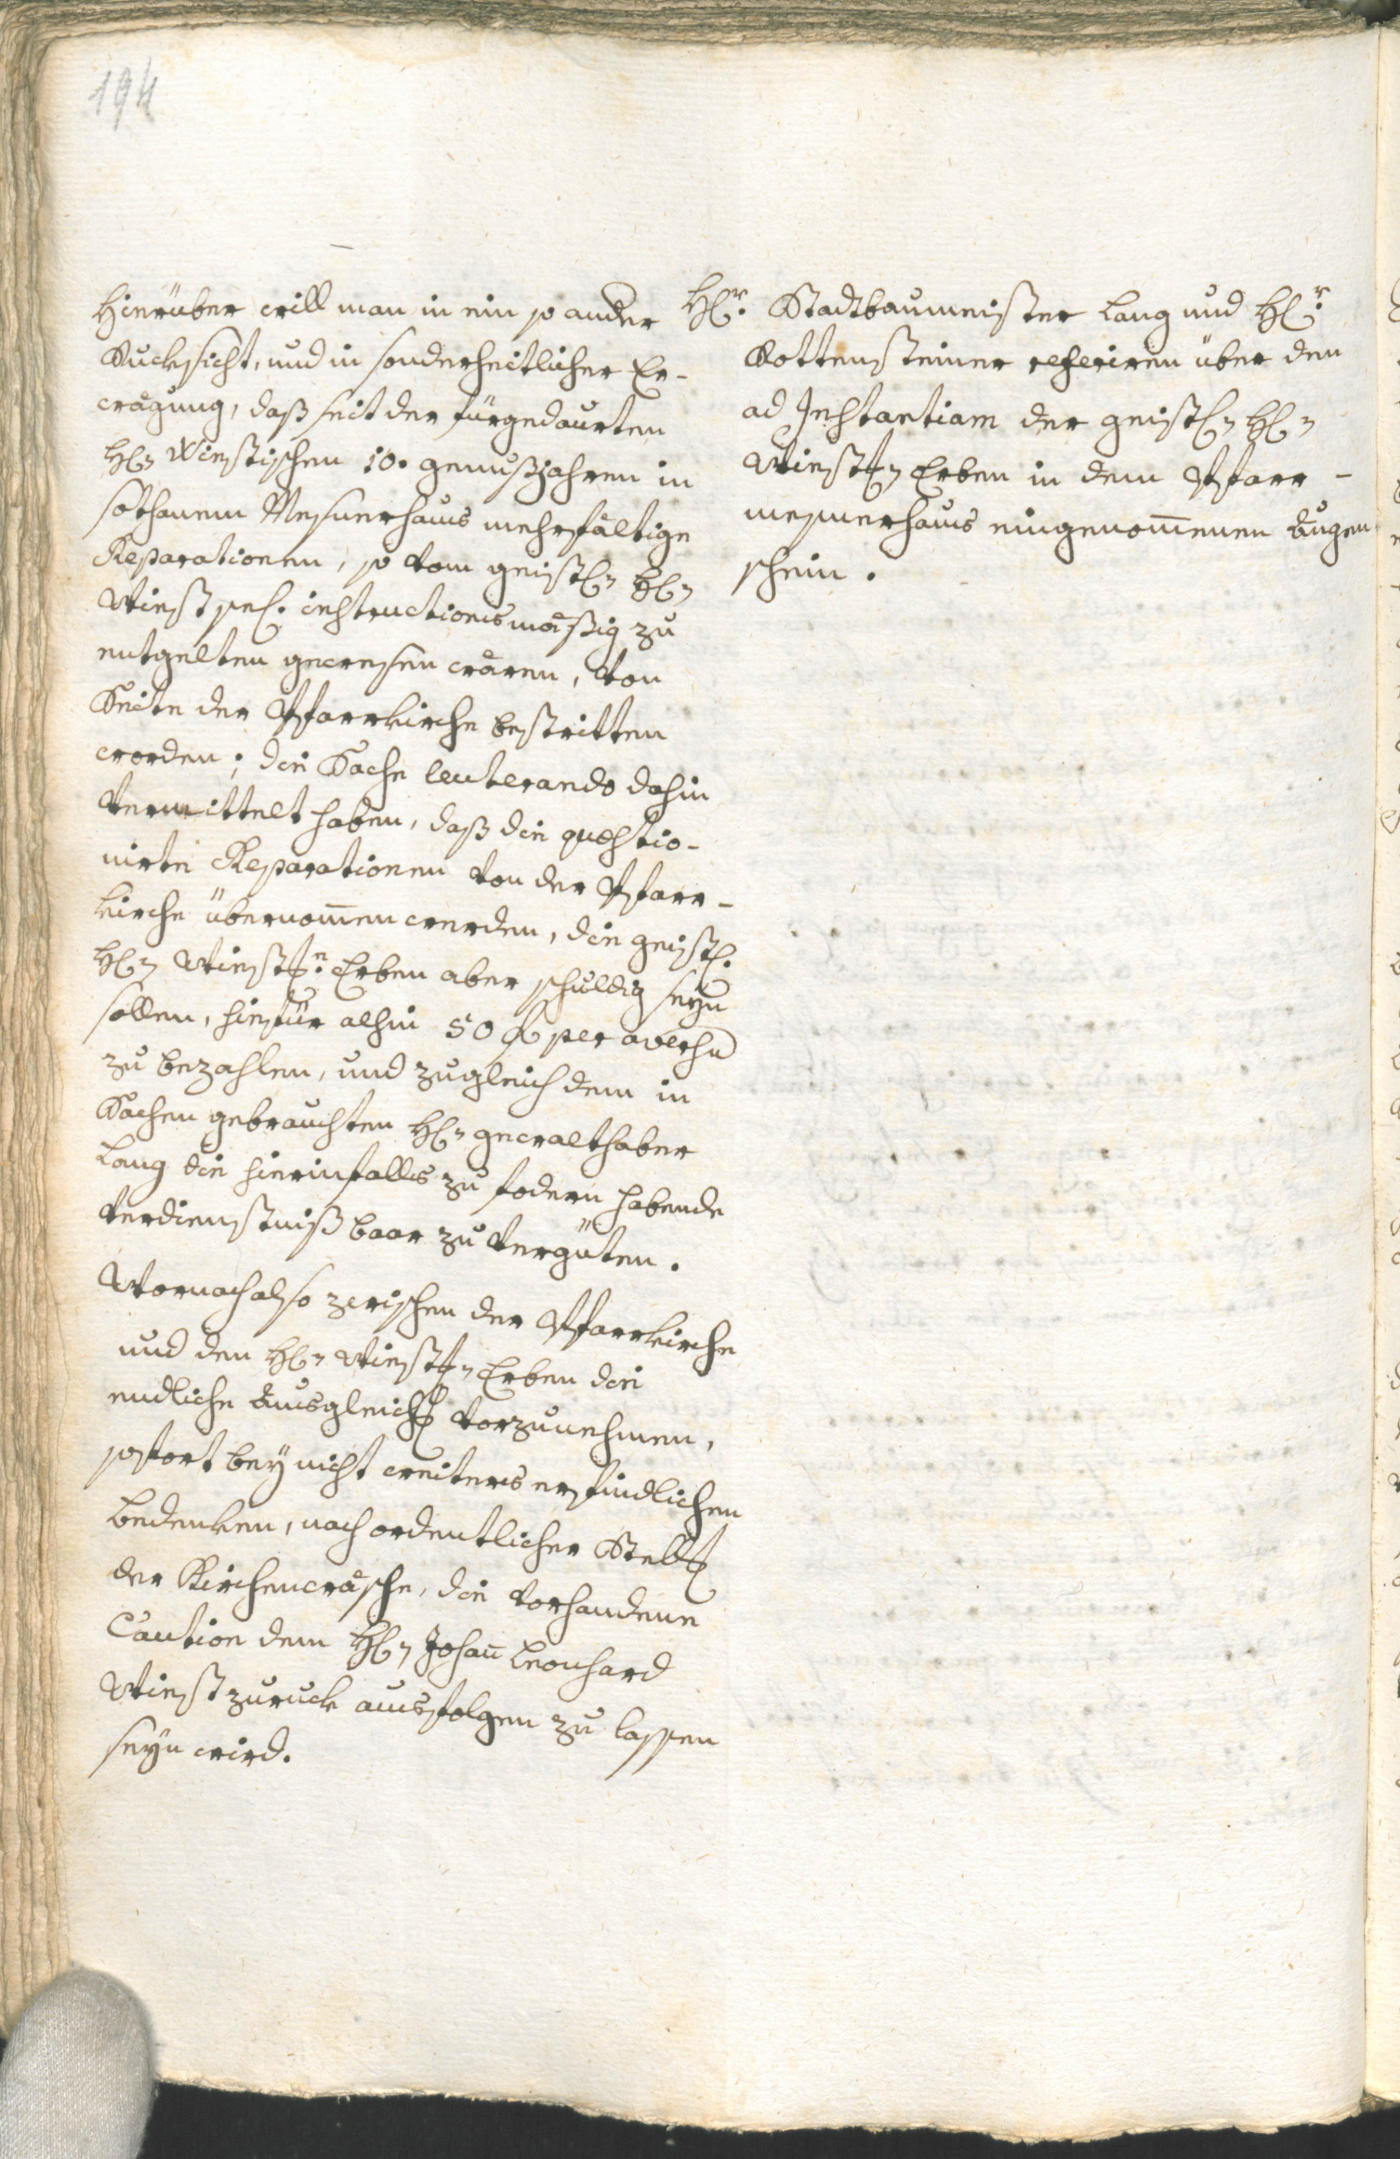 194
Hierüber will man in ein so ander
Rucksicht, und in sonderheitlicher Er-
wägung, daß seit der fürgedaurten
H: Wiestischen 10. genußjahren in
sothanem Mesnerhaus mehrfältige
Reparationen, so vom geistl: H:
Wiest sel. instructionsmäßig zu
entgelten gewesen wären, von
Seite der Pfarrkirche bestritten
worden; die Sache leuterando dahin
vermittelt haben, daß die quæstio-
nirte Reparationen von der Pfarr-
kirche übernom̅en werden, die geistl.
H: Wiestischen Erben aber schuldig seyn
sollen, hiefür alhin 50 f per aversu
zu bezahlen, und zugleich dem in
Sachen gebrauchten H: gewalthaber
Lang die hierinfalls zu fodern habende
Verdienstniß baar zu vergüten.
Wornach also zwischen der Pfarrkirche
und den H: Wiestischen Erben die
endliche Ausgleichung vorzunehmen,
sofort bey nicht weiters erfindlichen
Bedenken, nach ordentlicher Stellung
der Kirchenwäsche, die vorhandene
Caution dem H: Johan̅ Leonhard
Wiest zuruck ausfolgen zu lassen
seyn wird.
H:r Stadtbaumeister Lang und H:r
Rottensteiner referiren über den
ad Instantiam der geistl: H:
Wiestischen Erben in dem Pfarr-
mesnerhaus eingenom̅enen Augen
schein.